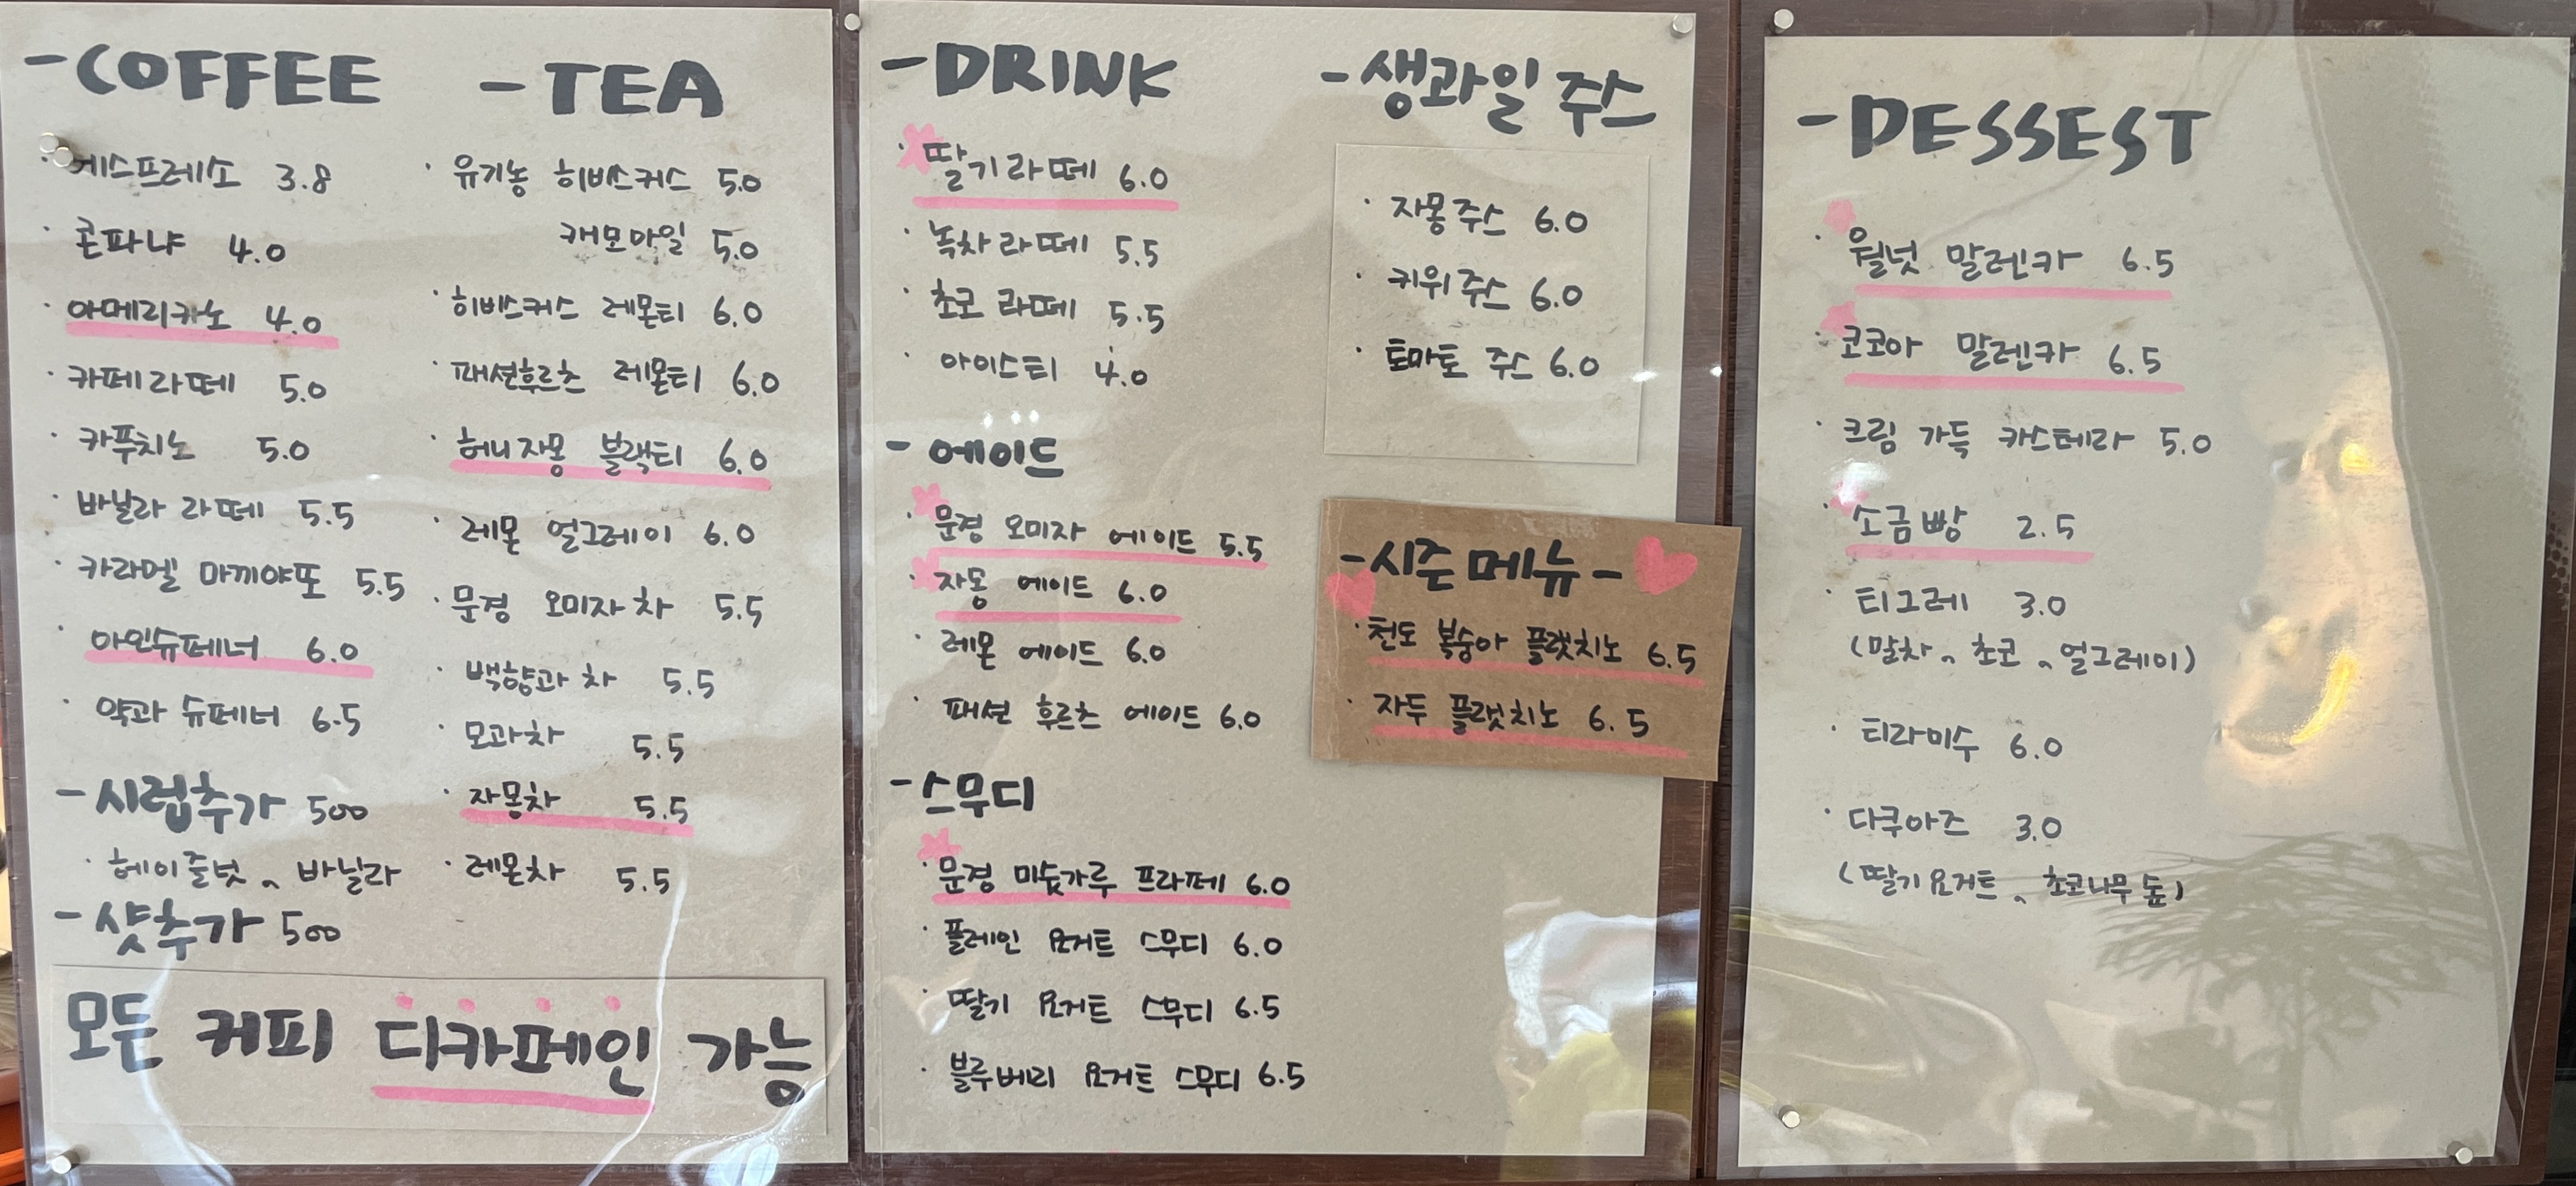 -COFFEE
· 에스프레소 3.8
· 콘파냐 4.0
· 아메리카노 4.0
· 카페라떼 5.0
· 카푸치노 5.0
· 바닐라 라떼 5.5
· 카라멜 마끼야또 5.5
· 아인슈페너 6.0
· 약과 슈페너 6.5
-시럽추가 500
· 헤이즐넛, 바닐라
-샷추가 500
모든 커피 디카페인 가능
-TEA
· 유기농 히비스커스 5.0
캐모마일 5.0
· 히비스커스 레몬티 6.0
· 패션후르츠 레몬티 6.0
· 허니자몽 블랙티 6.0
· 레몬 얼그레이 6.0
· 문경 오미자차 5.5
· 백향과차 5.5
· 모과차 5.5
· 자몽차 5.5
· 레몬차 5.5
-DRINK
· 딸기라떼 6.0
· 녹차라떼 5.5
· 초코 라떼 5.5
· 아이스티 4.0
-에이드
· 문경 오미자 에이드 5.5
· 자몽 에이드 6.0
· 레몬 에이드 6.0
· 패션 후르츠 에이드 6.0
-스무디
· 문경 미숫가루 프라페 6.0
· 플레인 요거트 스무디 6.0
· 딸기 요거트 스무디 6.5
· 블루베리 요거트 스무디 6.5
-생과일 주스
· 자몽주스 6.0
· 키위주스 6.0
· 토마토 주스 6.0
-시즌메뉴-
· 천도 복숭아 플랫치노 6.5
· 자두 플랫치노 6.5
-DESSEST
· 월넛 말렌카 6.5
· 코코아 말렌카 6.5
· 크림 가득 카스테라 5.0
· 소금빵 2.5
· 티그레 3.0
(말차, 초코, 얼그레이)
· 티라미수 6.0
· 다쿠아즈 3.0
(딸기요거트, 초코나무숲)